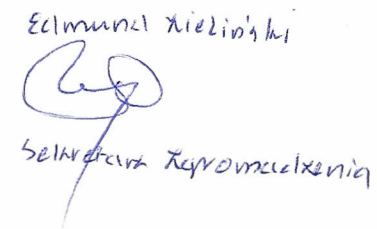 Edmund Zieliński
Sekretarz Zgromadzenia